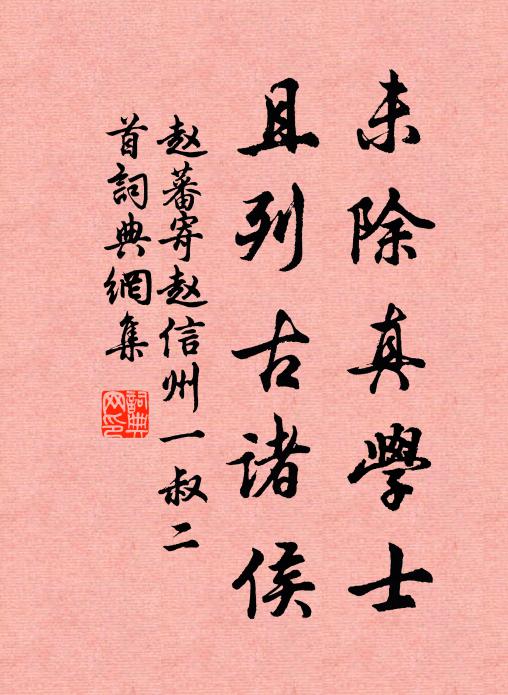 未除真學士
且列古諸侯
赵蕃寄赵信州一叔二
首詞典網集
詞典
网印